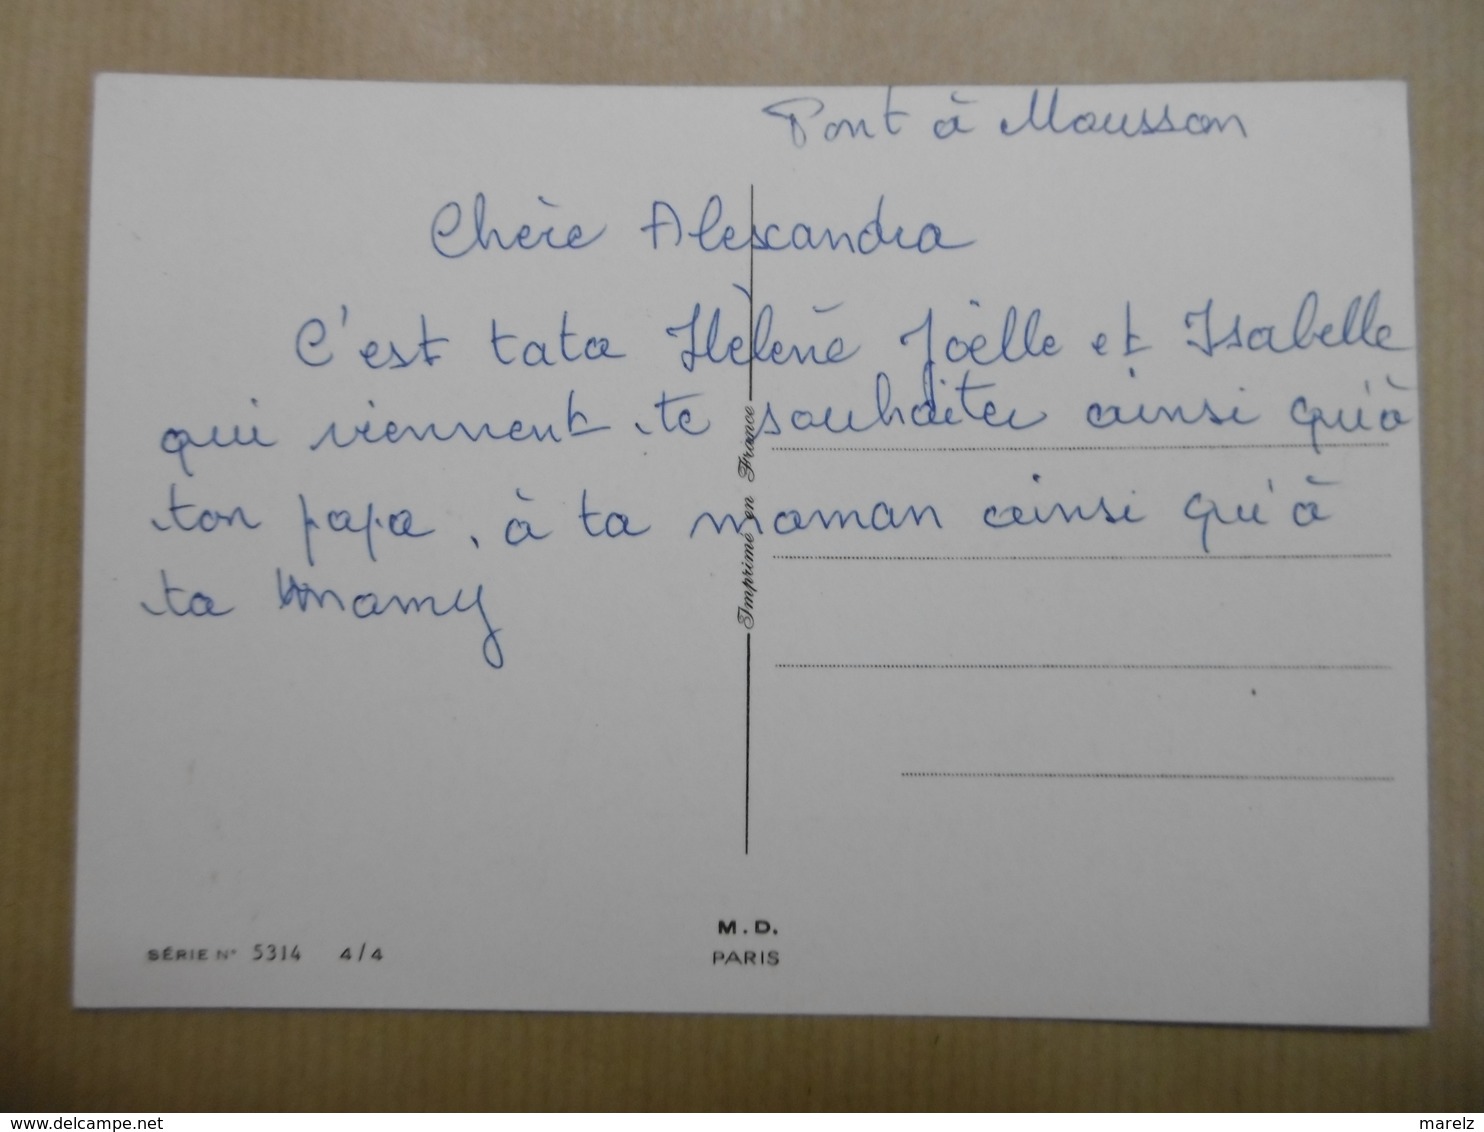 Pont à Mousson
Chère Alexandra
C'est tata Hèlène Joëlle et Isabelle
qui viennent te souhaiter ainsi qu'à
ton papa, à ta maman ainsi qu'à
ta mamy
Imprimé en France
M.D.
PARIS
SÉRIE N° 5314 4/4
delcampe.net
marelz